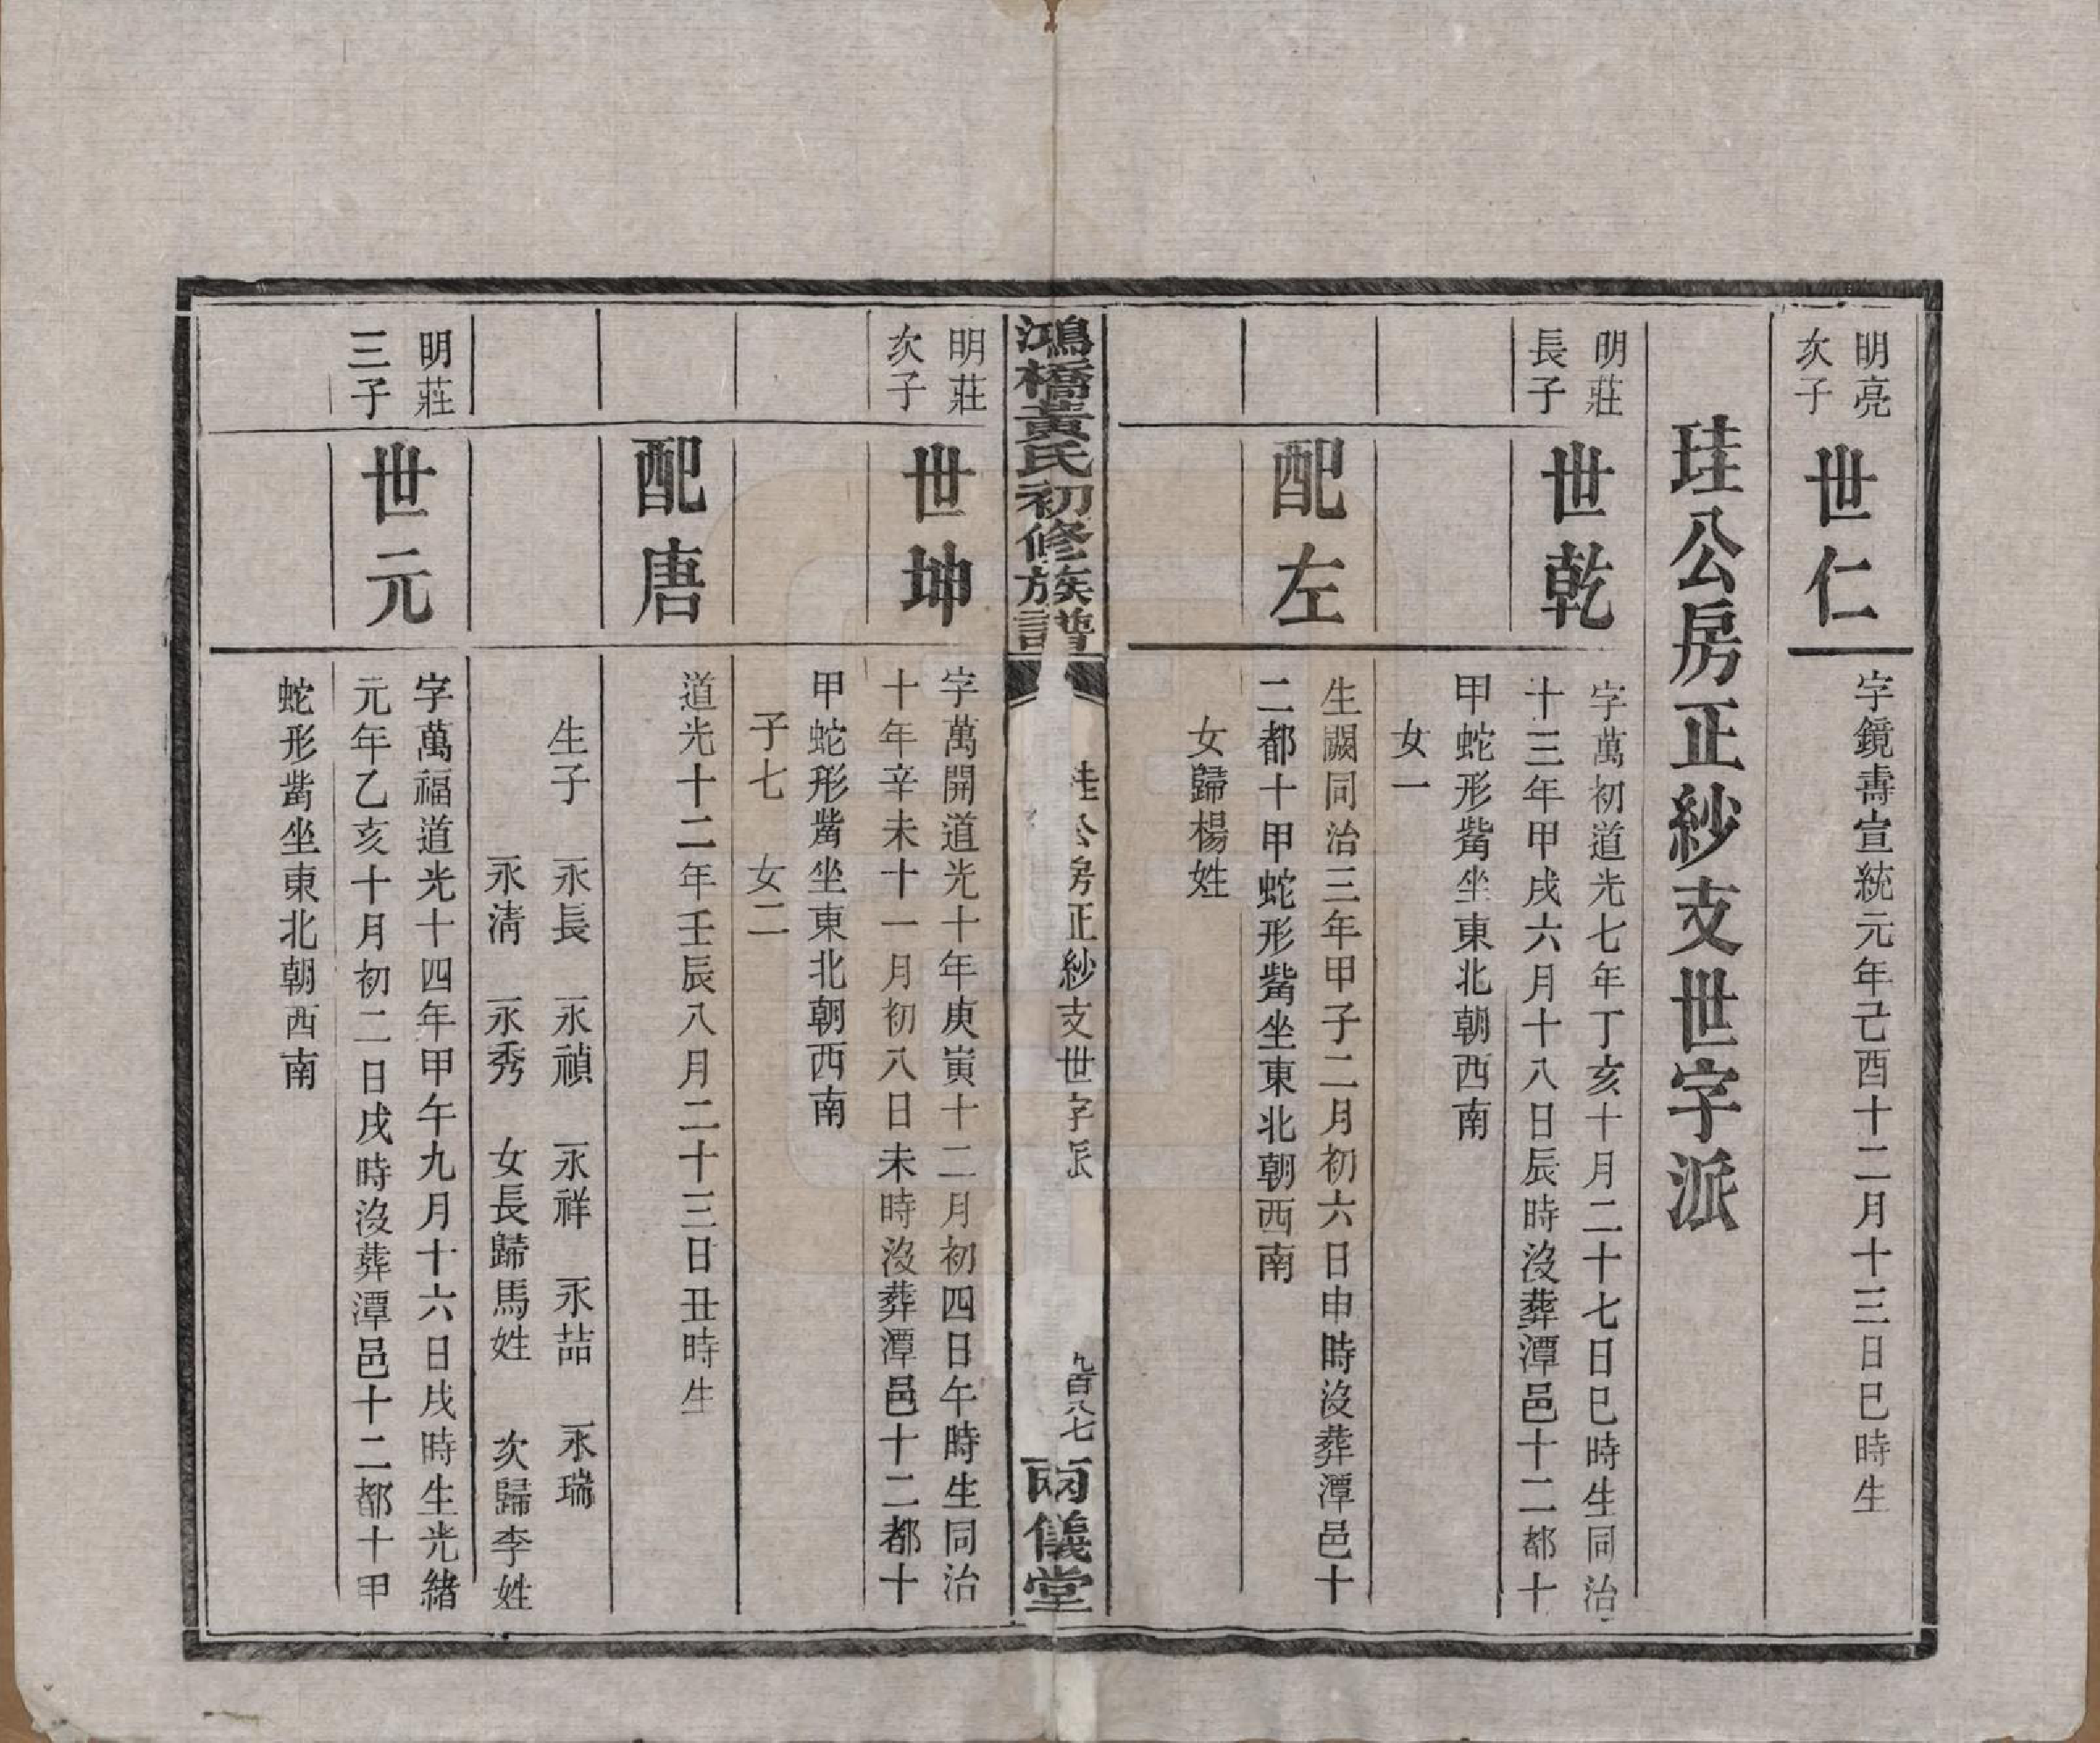 明亮
次子
世仁
字鏡壽宣統元年己酉十二月十三日巳時生
珪公房正紗支世字派
明莊
長子
世乾
字萬初道光七年丁亥十月二十七日巳時生同治
十三年甲戌六月十八日辰時沒葬潭邑十二都十
甲蛇形觜坐東北朝西南
女一
配左
生闕同治三年甲子二月初六日申時沒葬潭邑十
二都十甲蛇形觜坐東北朝西南
女歸楊姓
鴻橋黃氏初修族譜
珪公房正紗支世字派
九百八七
兩儀堂
明莊
次子
世坤
字萬開道光十年庚寅十二月初四日午時生同治
十年辛未十一月初八日未時沒葬潭邑十二都十
甲蛇形觜坐東北朝西南
子七 女二
配唐
道光十二年壬辰八月二十三日丑時生
生子 永長 永禎 永祥 永喆 永瑞
永清 永秀 女長歸馬姓 次歸李姓
明莊
三子
世元
字萬福道光十四年甲午九月十六日戌時生光緒
元年乙亥十月初二日戌時沒葬潭邑十二都十甲
蛇形觜坐東北朝西南